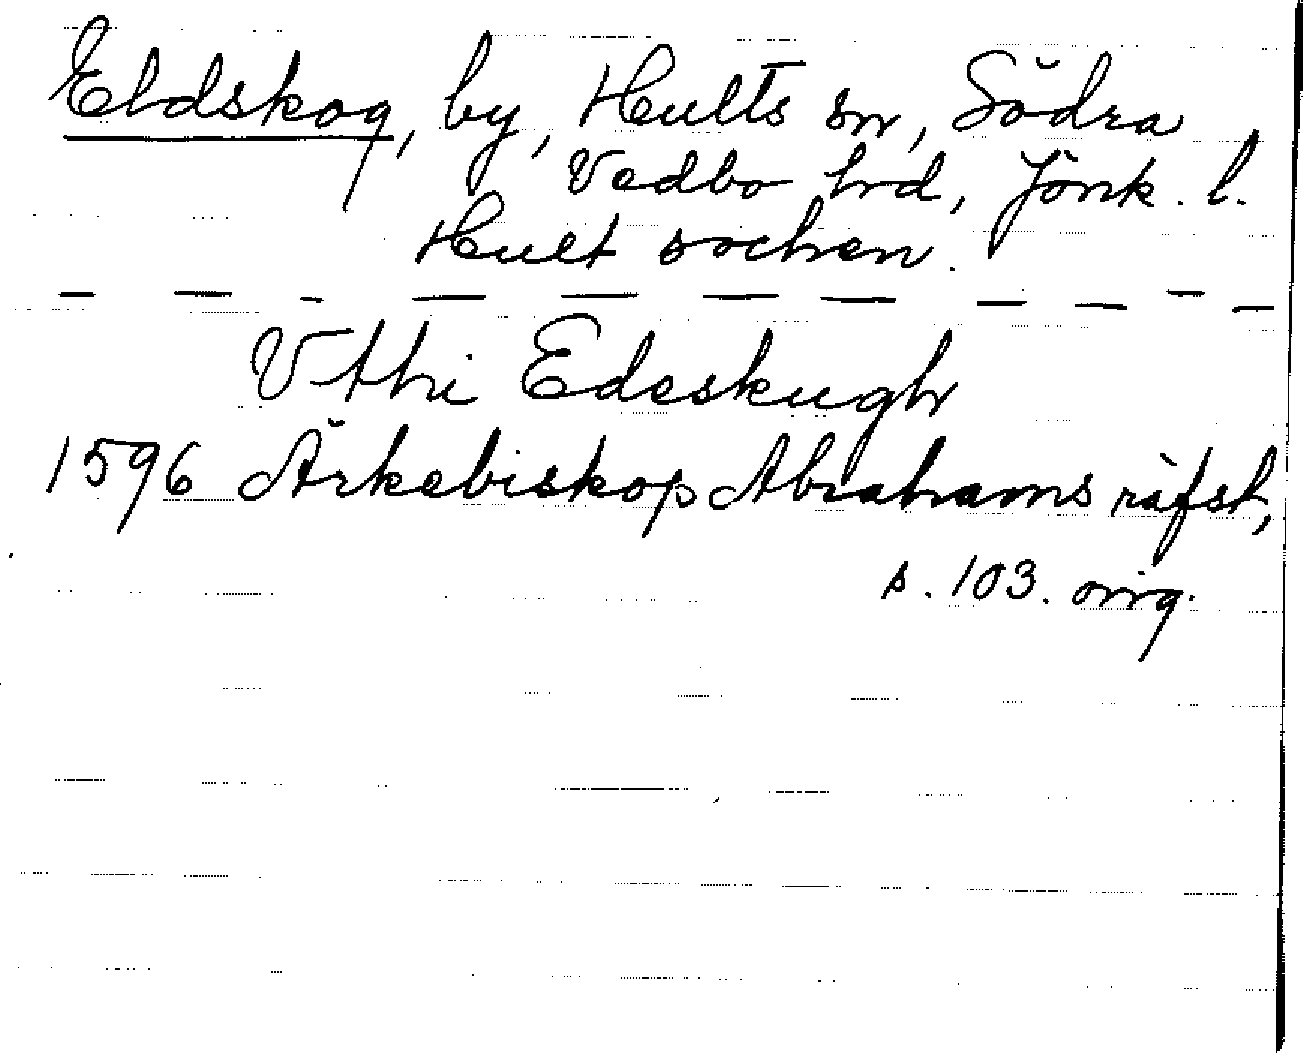 Eldskog, by, Hults sn, Södra
Vedbo hrd, Jönk. l.
Hult socken.
Vthi Edeskugh
1596 Ärkebiskop Abrahams räfst,
s. 103. orig.